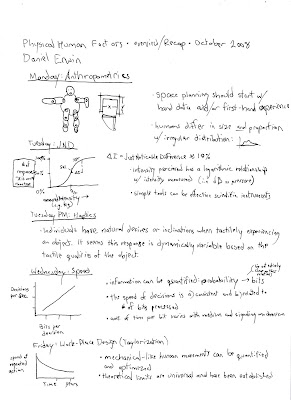 Physical Human Factors - overview/Recap - October 2008
Daniel Erwin
Monday: Anthropometrics
• space planning should start w/
hard data and/or first-hand experience
• humans differ in size and proportion
w/ irregular distribution:
Tuesday: JND
ΔI = Just Noticable Difference
• intensity perceived has a logarithmic relationship
w/ intensity measured (i.e. dB or pressure)
• simple tools can be effective scientific instruments
0%
Tuesday PM: Haptics
• Individuals have natural desires or inclinations when tactilely experiencing
an object. It seems this response is dynamically variable based on the
tactile qualities of the object.
Wednesday: Speed
Decisions
per sec.
Bits per
decision
• information can be quantified: probability → bits
• the speed of decisions is a) consistent and b) related to
# of bits processed
• cost of time per bit varies with medium and signaling mechanism
Friday: Work-Place Design (Taylorization)
speed of
repeated
action
Time years
• mechanical-like human movements can be quantified
and optimized
• theoretical limits are universal and have been established